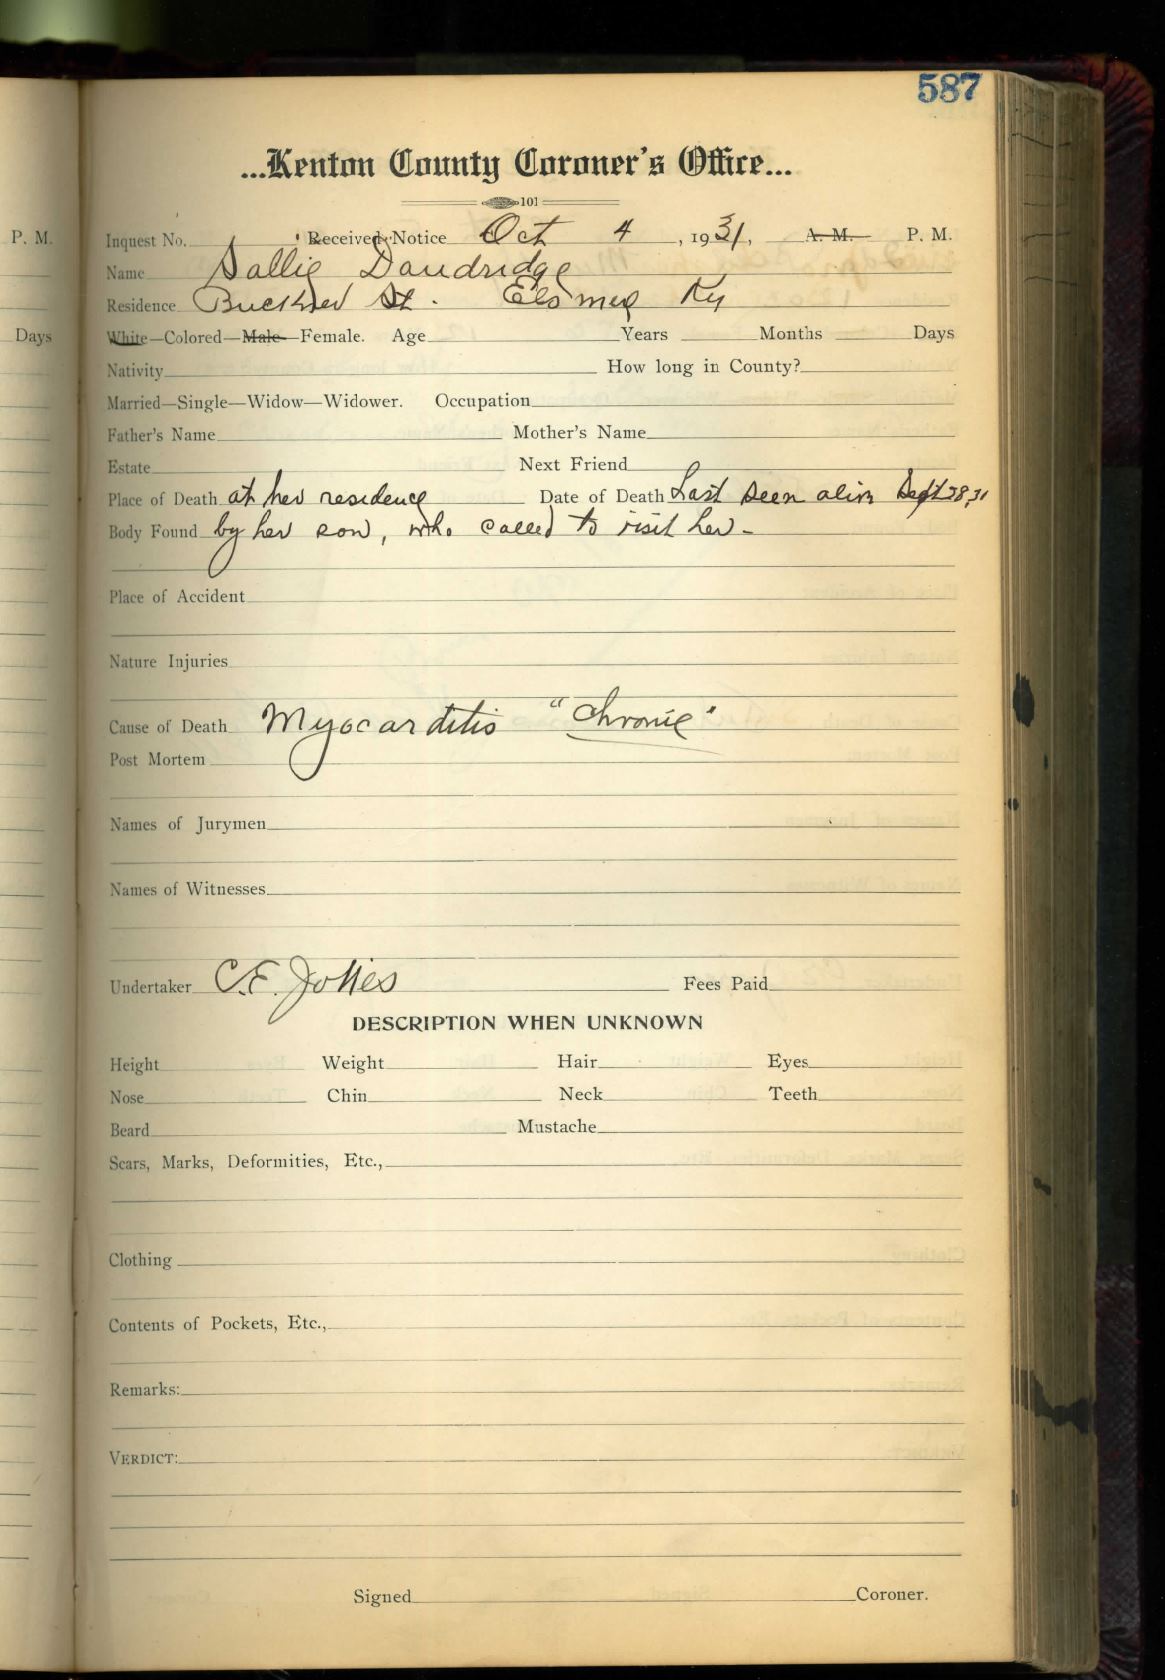 587
...Kenton County Coroner's Office...
101
P. M.
Inquest No. Received Notice Oct 4, 1931, A. M. P. M.
Name Sallie Dandridge
Residence Buckner St. Elsmere Ky
Days
White—Colored—Male—Female. Age Years Months Days
Nativity How long in County?
Married—Single—Widow—Widower. Occupation
Father's Name Mother's Name
Estate Next Friend
Place of Death at her residence Date of Death Last seen alive Sept 28, 31
Body Found by her son, who called to visit her-
Place of Accident
Nature Injuries
Cause of Death Myocarditis "Chronic"
Post Mortem
Names of Jurymen
Names of Witnesses
Undertaker C.E. Jones Fees Paid
DESCRIPTION WHEN UNKNOWN
Height Weight Hair Eyes
Nose Chin Neck Teeth
Beard Mustache
Scars, Marks, Deformities, Etc.,
Clothing
Contents of Pockets, Etc.,
Remarks:
VERDICT:
Signed Coroner.